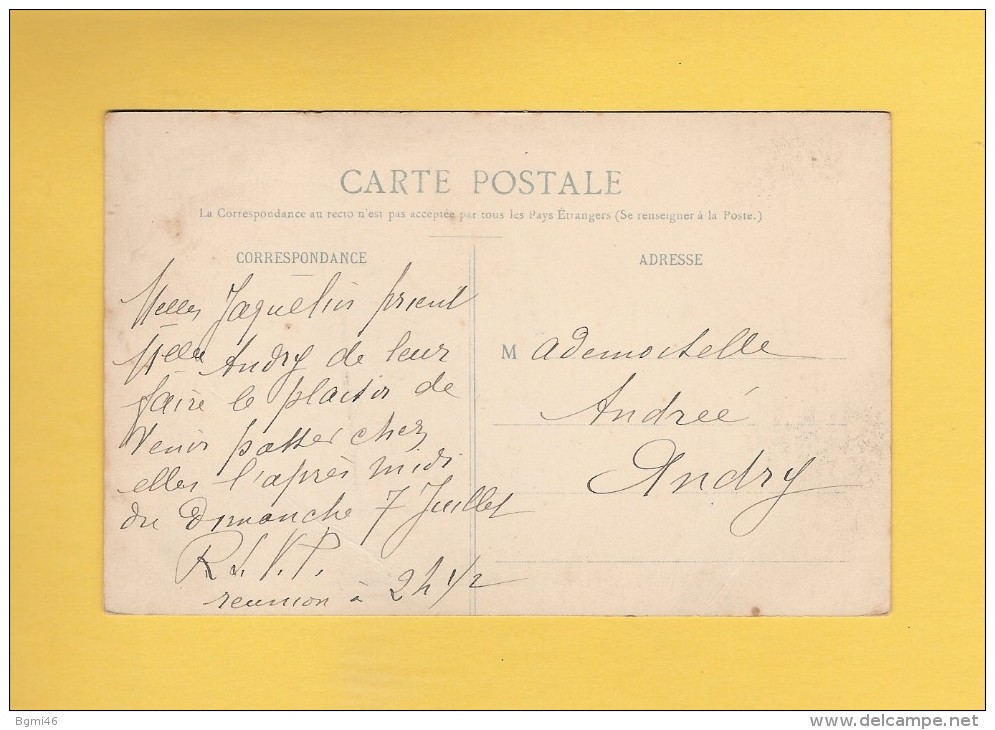 CARTE POSTALE
La Correspondance au recto n'est pas acceptée par tous les Pays Étrangers (Se renseigner à la Poste.)
CORRESPONDANCE
Melles Jaquelin prient
Melle Andry de leur
faire le plaisir de
venir passer chez
elles l'après midi
du Dimanche 7 Juillet
R.S.V.P.
reunion à 2h 1/2
ADRESSE
Mademoiselle
Andreé
Andry
Bgmi46
www.delcampe.net